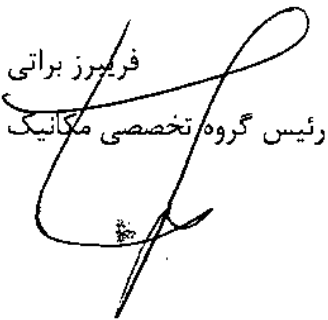 فریبرز براتی
رئیس گروه تخصصی مکانیک